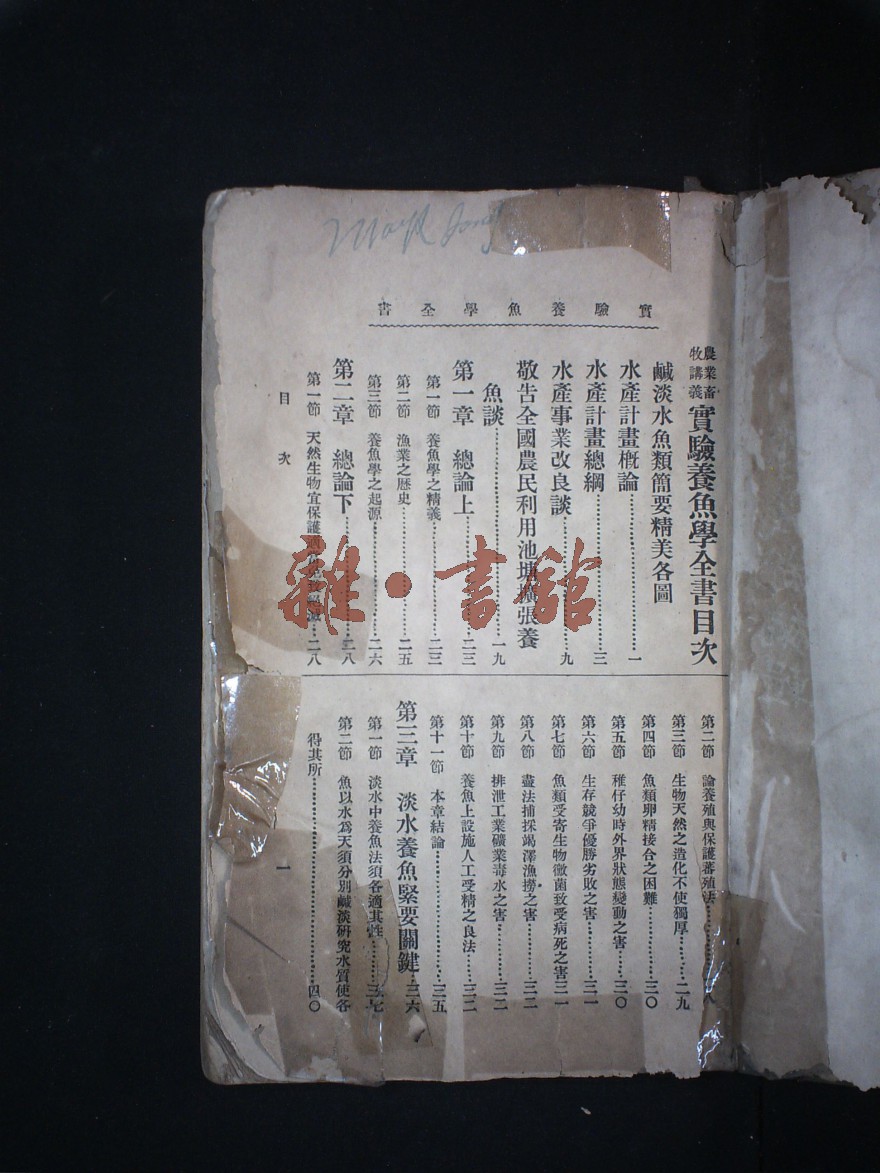 實驗養魚學全書
農業畜牧講義 實驗養魚學全書目次
鹹淡水魚類簡要精美各圖
水產計畫槪論……一
水產計畫總綱……三
水產事業改良談……九
敬告全國農民利用池塘擴張養
魚談……一九
第一章 總論上……二三
第一節 養魚學之精義……二三
第二節 漁業之歷史……二五
第三節 養魚學之起源……二六
第二章 總論下……二八
第一節 天然生物宜保護……二八
第二節 論養殖與保護蕃殖法……二八
第三節 生物天然之造化不使獨厚……二九
第四節 魚類卵精接合之困難……三〇
第五節 稚仔幼時外界狀態變動之害……三〇
第六節 生存競爭優勝劣敗之害……三一
第七節 魚類受寄生物黴菌致受病死之害三一
第八節 盡法捕採竭澤漁撈之害……三二
第九節 排泄工業礦業毒水之害……三二
第十節 養魚上設施人工受精之良法……三二
第十一節 本章結論……三五
第三章 淡水養魚緊要關鍵……三六
第一節 淡水中養魚法須各適其性……三七
第二節 魚以水爲天須分別鹹淡硏究水質使各
得其所……四〇
目次
一
雜·書館